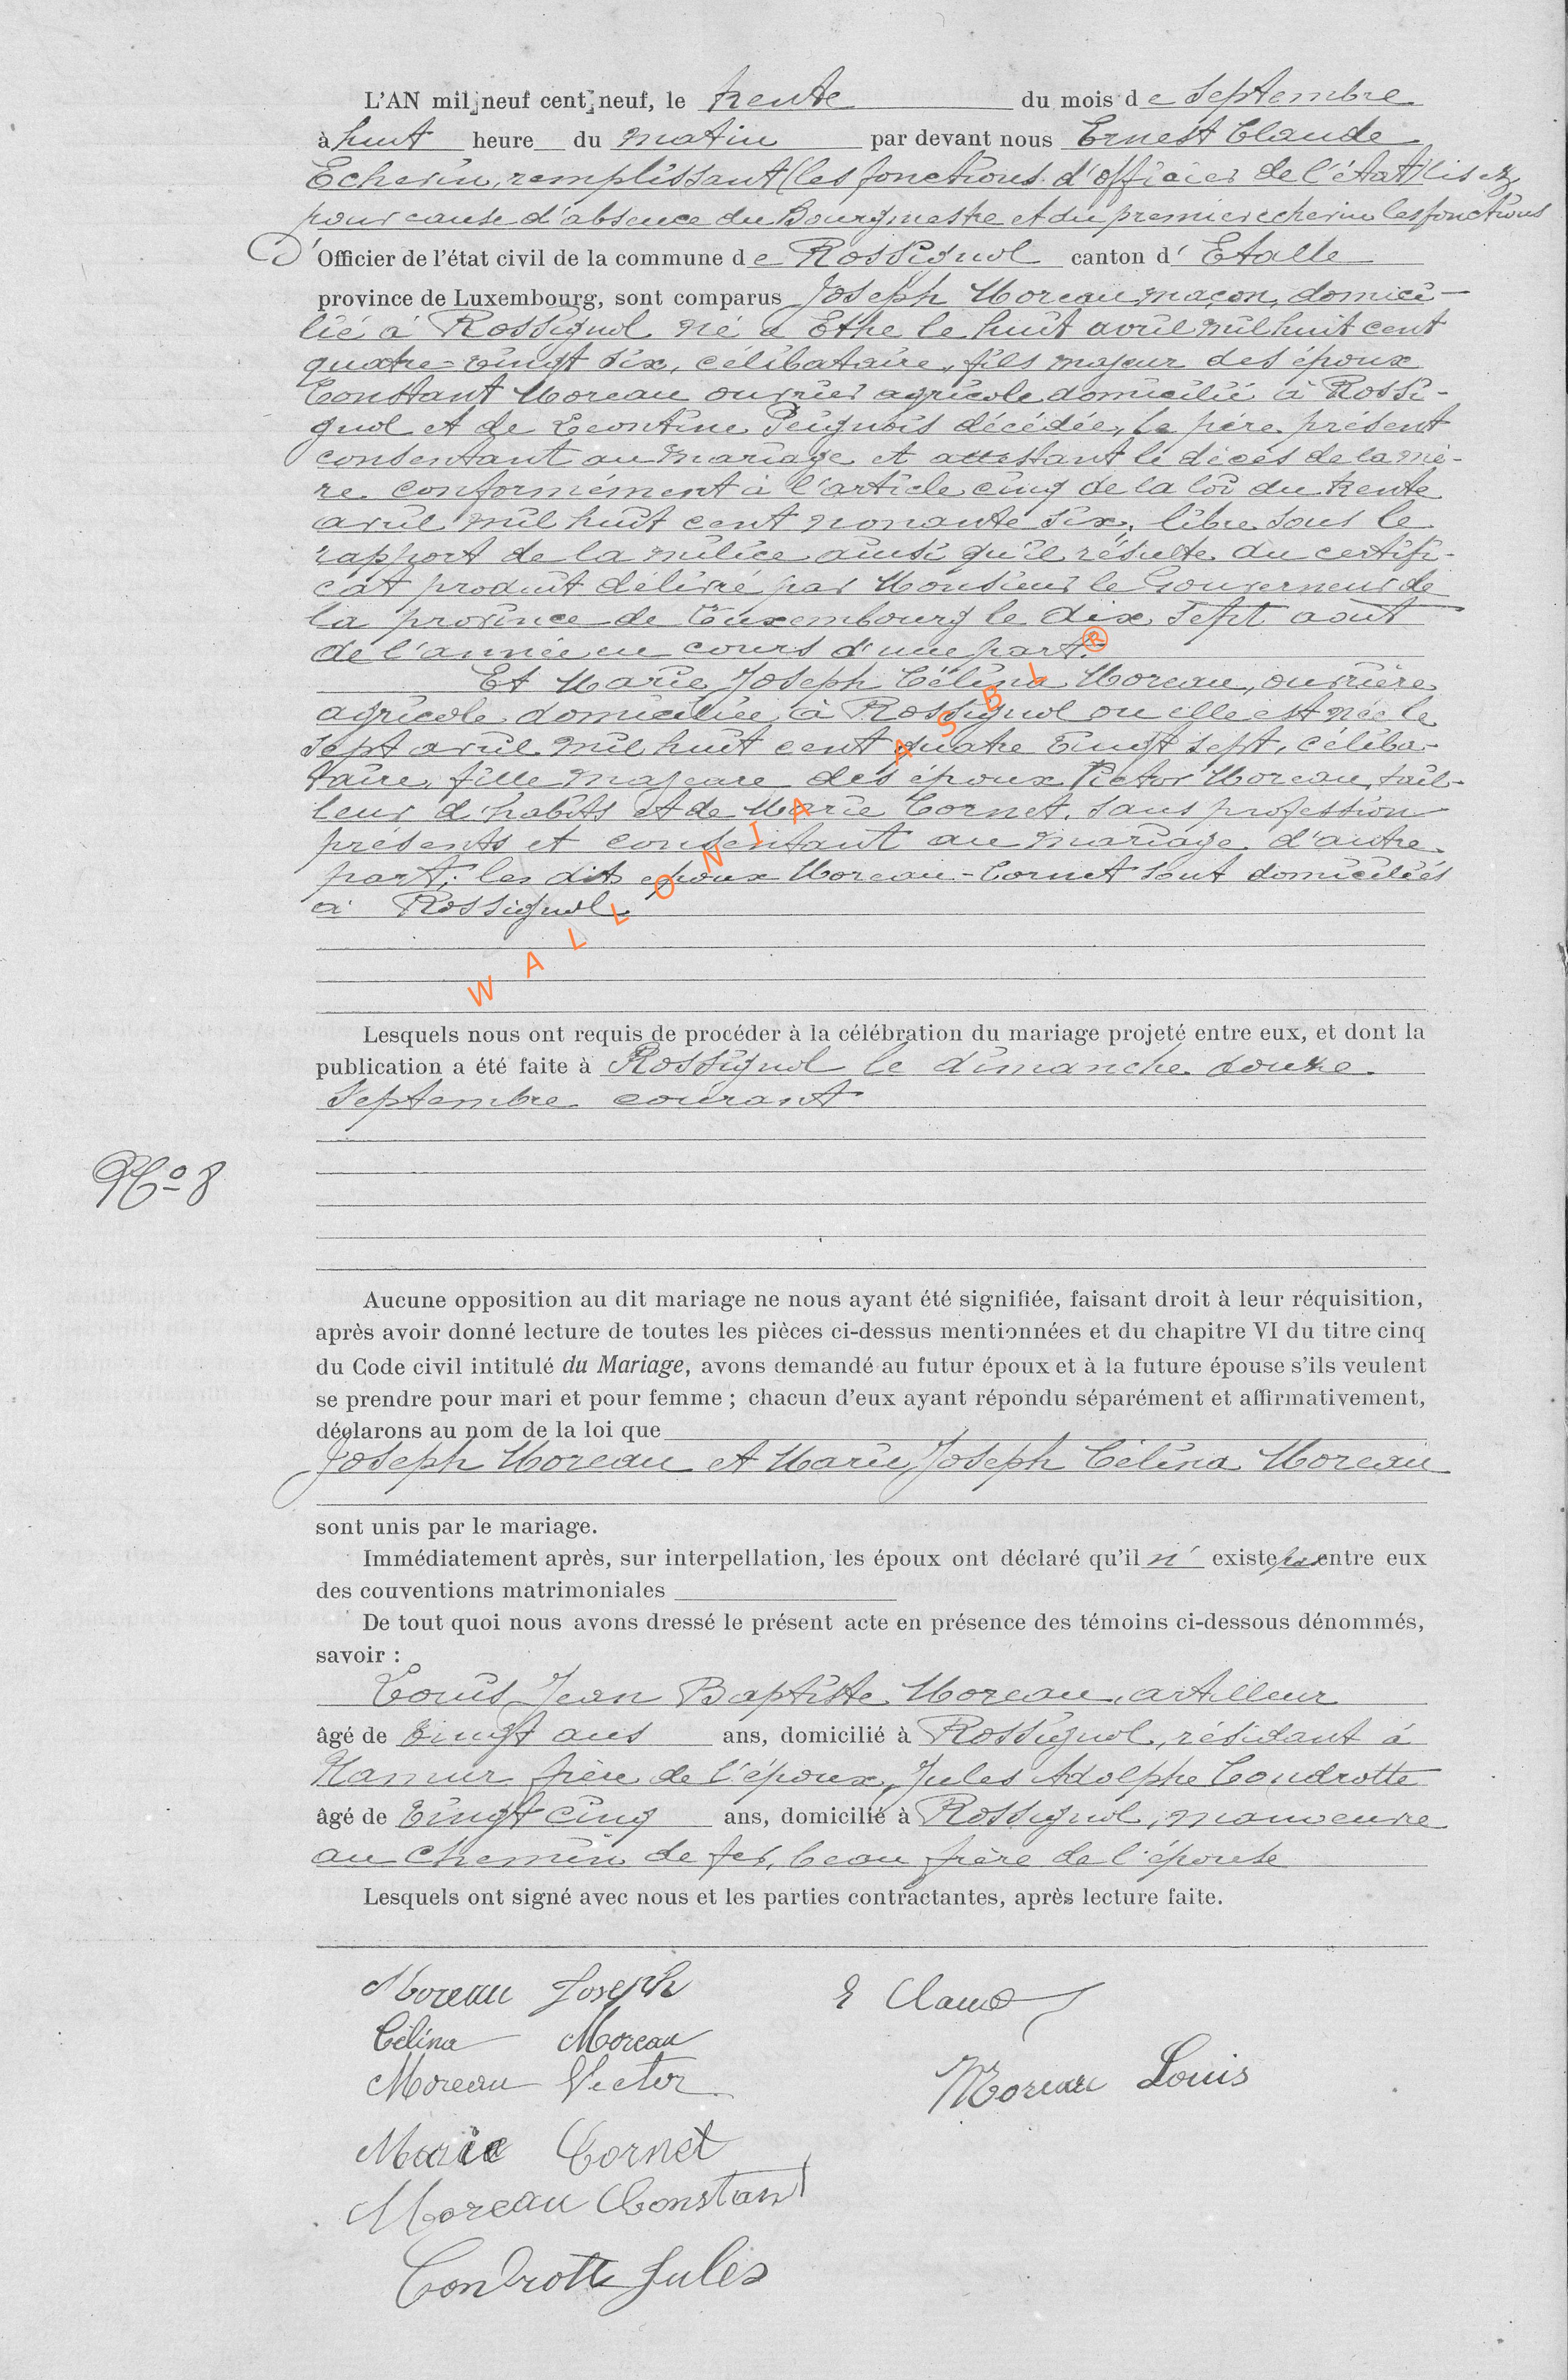 L'AN mil neuf cent neuf, le trente du mois de Septembre
à huit heure du matin par devant nous Ernest Claude
Echevin, remplissant (les fonctions d'officier de l'état) lisez
pour cause d'absence du Bourgmestre et du premier echevin les fonctions
d'Officier de l'état civil de la commune de Rossignol canton d'Etalle
province de Luxembourg, sont comparus Joseph Moreau maçon, domici-
lié à Rossignol né à Ethe le huit avril mil huit cent
quatre-vingt six, célibataire, fils majeur des époux
Constant Moreau ouvrier agricole domicilié à Rossi-
gnol et de Léontine Peignois décédée, le père présent
consentant au mariage et attestant le décès de la mè-
re conformément à l'article cinq de la loi du trente
avril mil huit cent nonante six, libre sous le
rapport de la milice ainsi qu'il résulte du certifi-
cat produit délivré par Monsieur le Gouverneur de
la province de Luxembourg le dix sept août
de l'année en cours d'une part.
Et Marie Joseph Célina Moreau, ouvrière
agricole domiciliée à Rossignol ou elle est née le
sept avril mil huit cent quatre vingt sept, céliba-
taire, fille majeure des époux Victor Moreau, tail-
leur d'habits et de Marie Cornet, sans profession
présents et consentant au mariage d'autre
part; les dits epoux Moreau-Cornet sont domiciliés
à Rossignol.
WALLONIA ASBL ®
Lesquels nous ont requis de procéder à la célébration du mariage projeté entre eux, et dont la
publication a été faite à Rossignol le dimanche douze
Septembre courant
No 8
Aucune opposition au dit mariage ne nous ayant été signifiée, faisant droit à leur réquisition,
après avoir donné lecture de toutes les pièces ci-dessus mentionnées et du chapitre VI du titre cinq
du Code civil intitulé du Mariage, avons demandé au futur époux et à la future épouse s'ils veulent
se prendre pour mari et pour femme ; chacun d'eux ayant répondu séparément et affirmativement,
déclarons au nom de la loi que
Joseph Moreau et Marie Joseph Célina Moreau
sont unis par le mariage.
Immédiatement après, sur interpellation, les époux ont déclaré qu'il n'existe pas entre eux
des couventions matrimoniales
De tout quoi nous avons dressé le présent acte en présence des témoins ci-dessous dénommés,
savoir :
Louis Jean Baptiste Moreau, artilleur
âgé de vingt ans ans, domicilié à Rossignol, résidant à
Namur frère de l'époux, Jules Adolphe Condrotte
âgé de vingt cinq ans, domicilié à Rossignol, manoeuvre
au chemin de fer, beau frère de l'épouse
Lesquels ont signé avec nous et les parties contractantes, après lecture faite.
Moreau Joseph
E Claude
Célina Moreau
Moreau Victor
Moreau Louis
Marie Cornet
Moreau Constant
Condrotte Jules